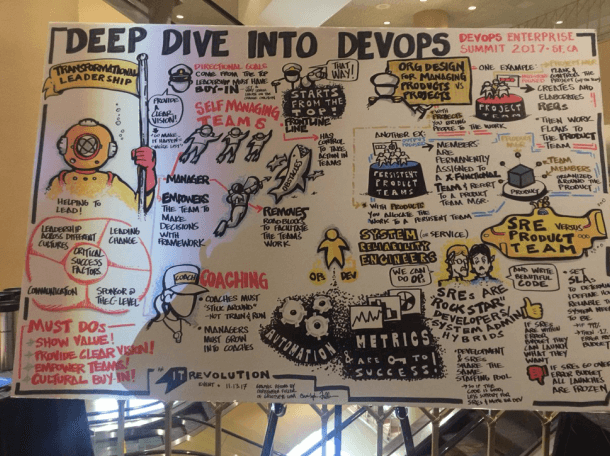 DEEP DIVE INTO DEVOPS
DEVOPS ENTERPRISE
SUMMIT 2017 - SF, CA
TRANSFORMATIONAL
LEADERSHIP
HELPING TO
LEAD!
LEADERSHIP
ACROSS DIFFERENT
CULTURES
LEADING
CHANGE
CRITICAL
SUCCESS
FACTORS
COMMUNICATION
SPONSOR @
THE C-LEVEL
MUST DOs
SHOW VALUE!
PROVIDE CLEAR VISION!
EMPOWER TEAMS!
CULTURAL BUY-IN!
PROVIDE
A
CLEAR
VISION!
DIRECTIONAL GOALS
COME FROM THE TOP
LEADERSHIP MUST HAVE
BUY-IN
THAT
WAY!
STARTS
FROM THE
FRONTLINE
SELF MANAGING
TEAMS
MANAGER
EMPOWERS
THE TEAM TO
MAKE
DECISIONS
WITH
FRAMEWORK
OBSTACLES
REMOVES
ROADBLOCKS
TO FACILITATE
THE TEAM'S
WORK
COACH
COACHING
COACHES MUST
"STICK AROUND"
NOT TRAIN & RUN
MANAGERS
MUST GROW
INTO COACHES
IT REVOLUTION
11.13.17
ORG DESIGN
FOR MANAGING
PRODUCTS VS
PROJECTS
ONE EXAMPLE
PROJECT
TEAM
CREATES AND
ELABORATES
REQs
THEN WORK
FLOWS TO
THE PRODUCT
TEAM
WITH
PROJECTS
YOU BRING
PEOPLE TO THE WORK
ANOTHER EX.
PERSISTENT
PRODUCT
TEAMS
MEMBERS
ARE
PERMANENTLY
ASSIGNED TO
A X FUNCTIONAL
TEAM & REPORT
TO A PRODUCT
TEAM MGR.
WITH PRODUCTS
YOU ALLOCATE THE
WORK TO A PERSISTENT TEAM
PRODUCT
MGR
PRODUCT
TEAM
MEMBERS
ORGANIZED
AROUND THE
PRODUCT
SYSTEM
RELIABILITY
ENGINEERS
(OR SERVICE)
OPS
DEV
AUTOMATION
METRICS
ARE
TO
SUCCESS!
WE CAN
DO OPS
AND WRITE
BEAUTIFUL
CODE.
SREs ARE
"ROCK STAR"
DEVELOPERS/
SYSTEM ADMIN
HYBRIDS
DEVELOPMENT
& SREs
SHARE THE
SAME
STAFFING POOL
SRE VERSUS
PRODUCT
TEAM
SET
SLAs
TO DETERMINE
IF SREs ARE
ERROR
BUDGET THEY
CAN LAUNCH
WHAT THEY
WANT
IF SREs GO OVER
ERROR BUDGET
ALL LAUNCHES
ARE FROZEN